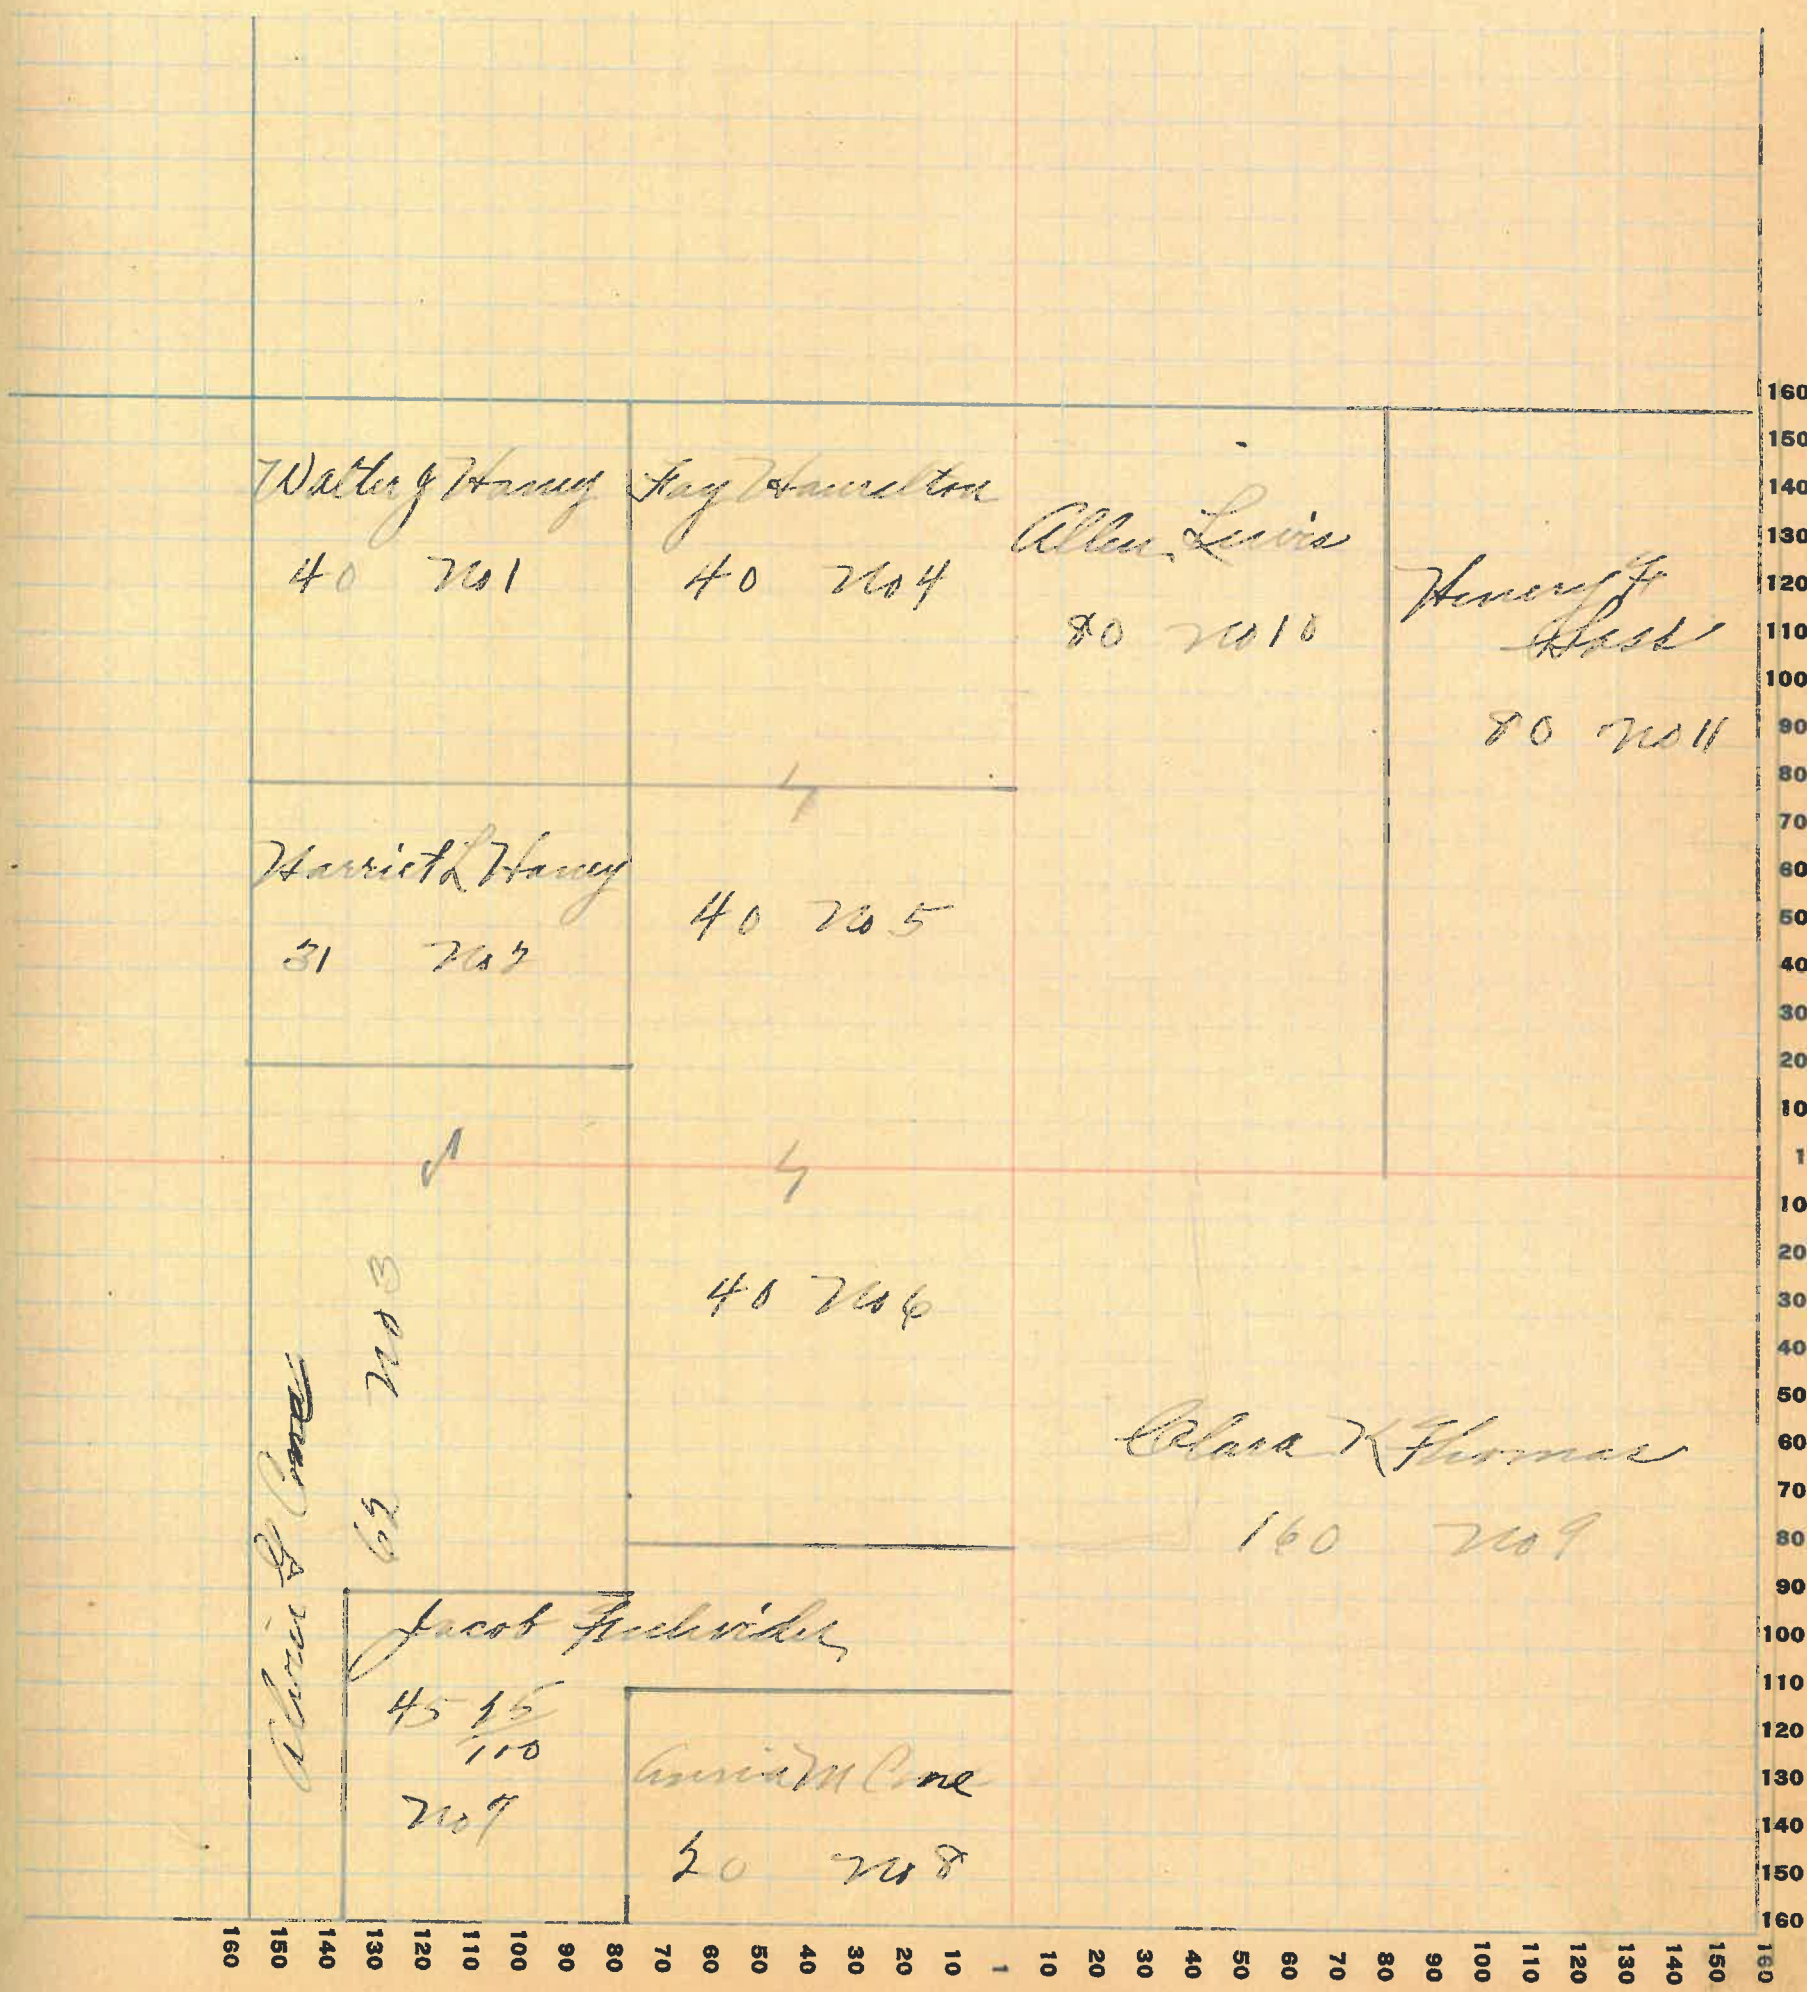 Walter J Haney
40 No 1
Fay Hamilton
40 No 4
Allen Lewis
80 No 10
Henery F
80 No 11
Harriet L Haney
31 No 2
40 No 5
40 No 6
62 No 3
Alvin G Cone
Clara K Thomas
160 No 9
Jacob
45 15/100
No 7
Annia M Cone
20 No 8
160
150
140
130
120
110
100
90
80
70
60
50
40
30
20
10
1
10
20
30
40
50
60
70
80
90
100
110
120
130
140
150
160
160 150 140 130 120 110 100 90 80 70 60 50 40 30 20 10 1 10 20 30 40 50 60 70 80 90 100 110 120 130 140 150 160